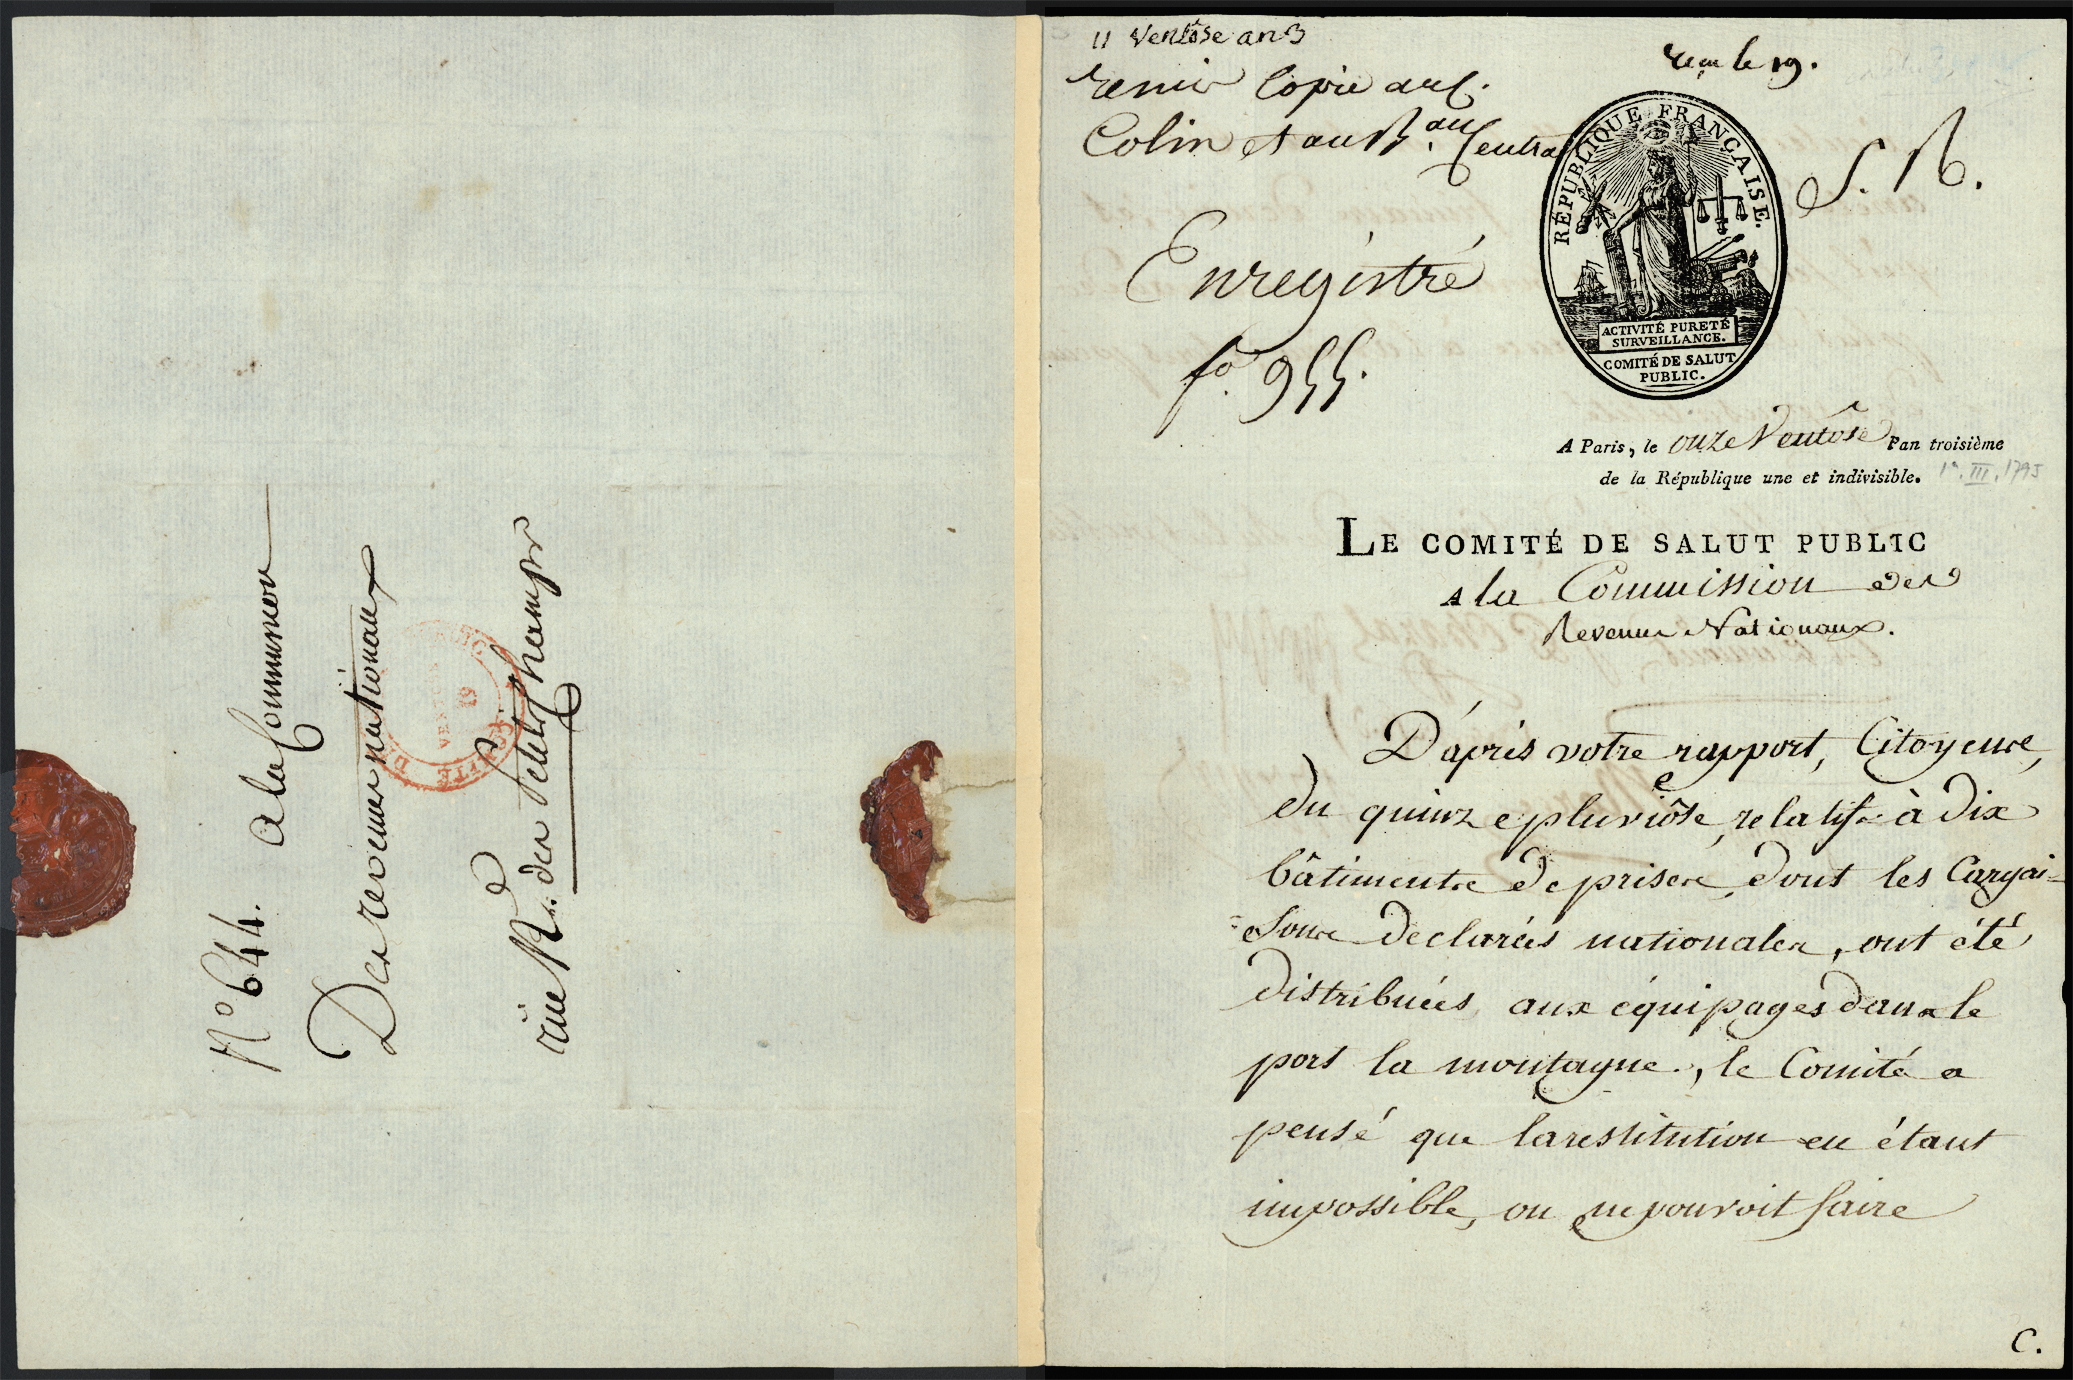 N° 644. a la Commission
Des revenus nationaux
rüe N.e des Petits Champs
VENTOSE
19
11 Ventôse an 3
remis Copie au C.
Colin et au B.au Central
reçu le 19.
S. R.
Enregistré
f.o 955.
RÉPUBLIQUE FRANÇAISE.
ACTIVITÉ PURETÉ
SURVEILLANCE.
COMITÉ DE SALUT
PUBLIC.
A Paris, le onze Ventôse l'an troisième
de la République une et indivisible. 1er. III. 1795
LE COMITÉ DE SALUT PUBLIC
A la Commission des
Revenus Nationaux.
D'après votre rapport, Citoyens,
du quinze pluviôse, relatif à dix
bâtiments de prises, dont les Cargai-
-sons declarées nationales, ont été
distribuées aux équipages dans le
port la montagne, le Comité a
pensé que la restitution en étant
impossible, on ne pouvoit faire
C.